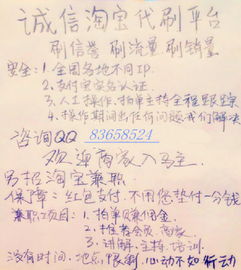 诚信淘宝代刷平台
刷信誉 刷流量 刷销量
安全:1.全国各地不同IP.
2.支付宝实名认证
3.人工操作,拍单主持全程跟踪
4.操作期间出任何问题我们解决
咨询QQ 83658524
欢迎商家入驻
另招淘宝兼职
保障:红包支付,不用您垫付一分钱
兼职项目:1.拍单赚佣金.
2.推荐会员,商家
3.讲解,主持,培训.
没有时间,地点限制,心动不如行动